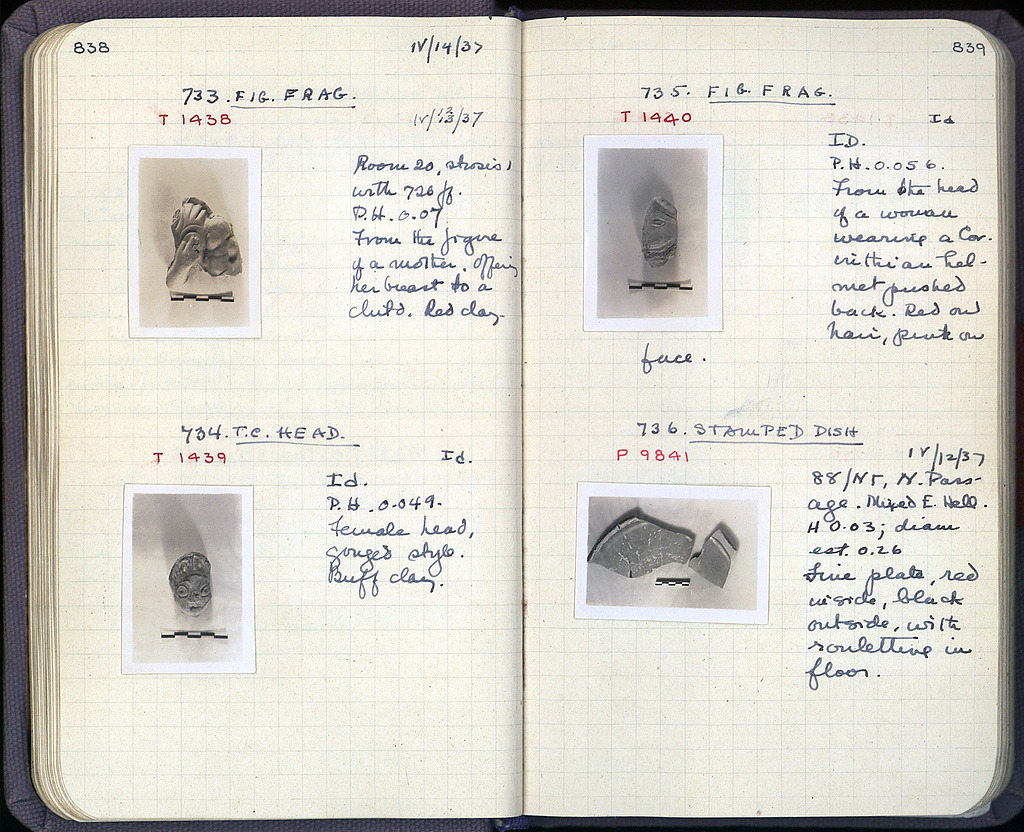 838
IV/14/37
733. FIG. FRAG.
T 1438
IV/13/37
Room 20, strosis 1
with 726 ff.
P.H. 0.07
From the figure
of a mother, offering
her breast to a
child. Red clay.
734. T.C. HEAD.
T 1439
Id.
Id.
P.H. 0.049.
Female head,
gouged style.
Buff clay.
839
735. FIG. FRAG.
T 1440
Id
ID.
P.H. 0.056.
From the head
of a woman
wearing a Cor-
inthian hel-
met pushed
back. Red on
hair, pink on
face.
736. STAMPED DISH
P 9841
IV/12/37
88/ΝΓ, N. Pass-
age. Mixed E. Hell.
H 0.03; diam
est. 0.26
Fine plate, red
inside, black
outside, with
rouletting in
floor.